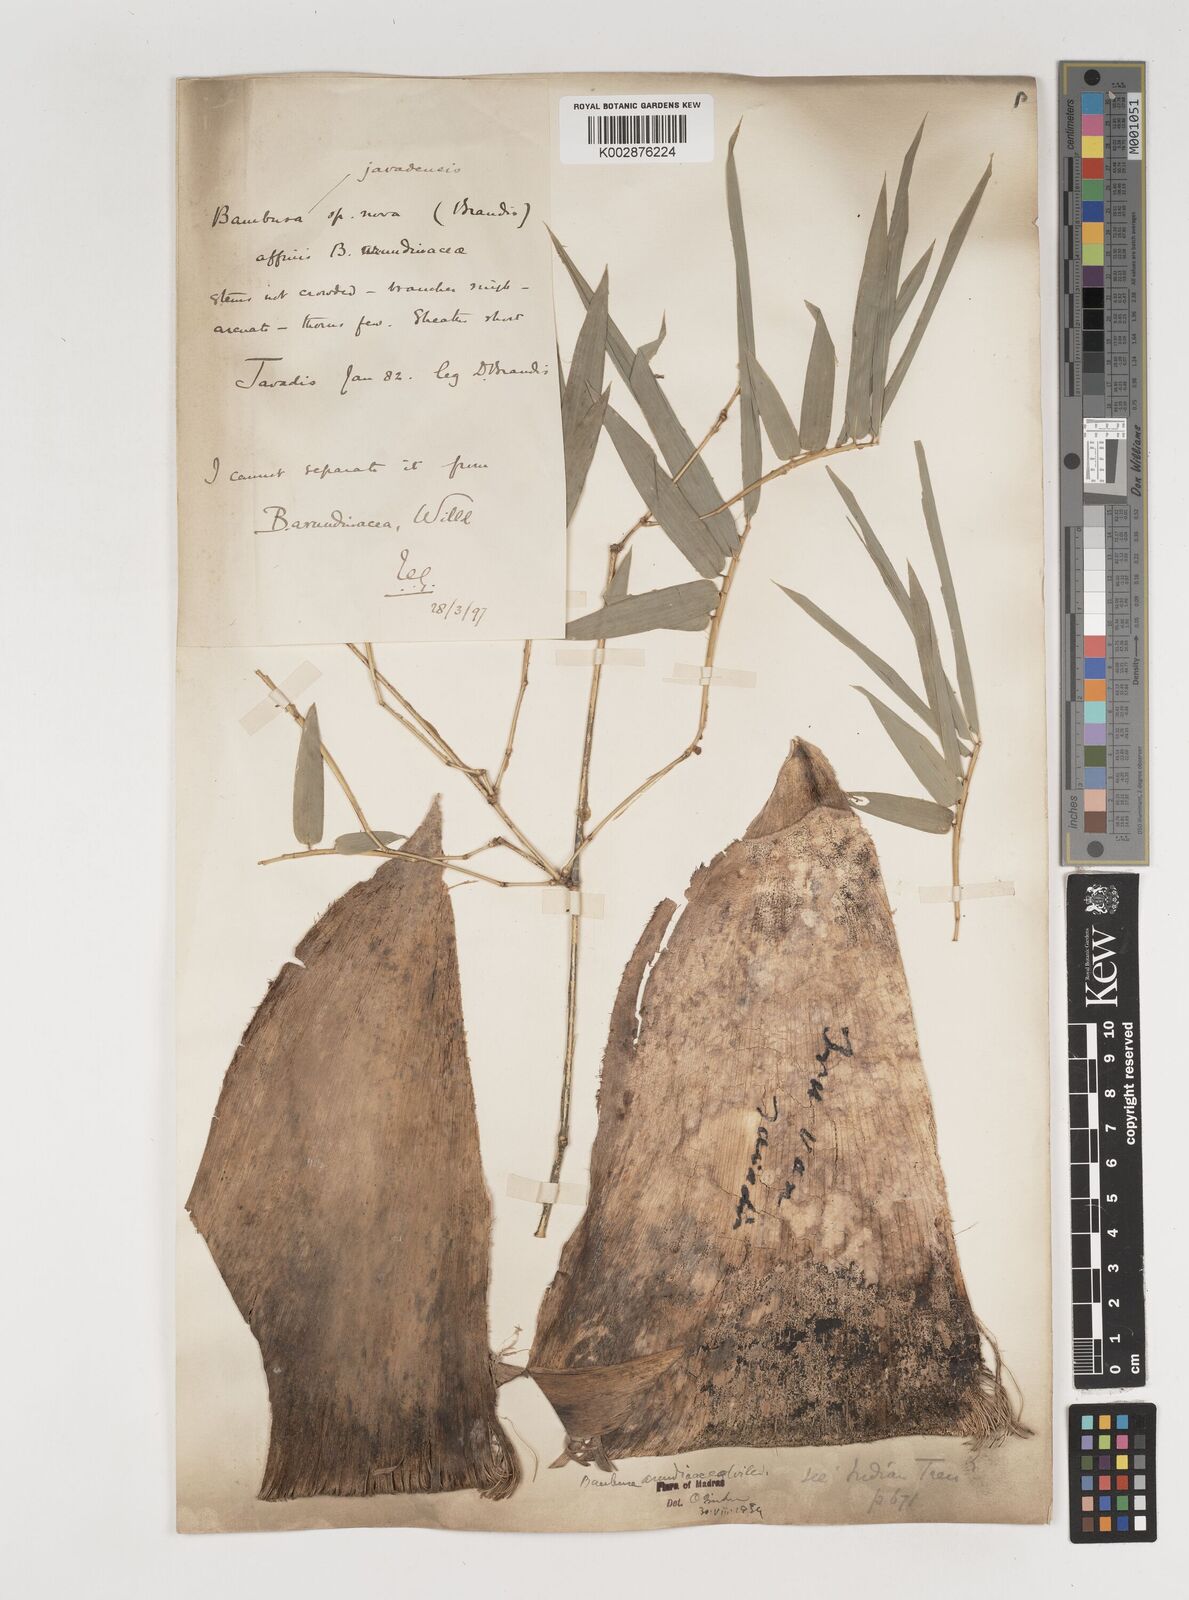 ROYAL BOTANIC GARDENS KEW
K002876224
javadensis
Bambusa sp. nova (Brandis)
affinis B. arundinaceæ
Stems not crowded – branches single –
arcuate – thorns few. Sheaths short
Javadis Jan 82. leg D. Brandis
I cannot separate it from
B. arundinacea, Willd
28/3/97
Javadi
Bambusa arundinacea Willd.
see Indian Trees
p 671
Flora of Madras
Det.
30.VIII.1934
centimeters
M001051
Don Williams
Density
inches
Royal Botanic Gardens
Kew
0 1 2 3 4 5 6 7 8 9 10
cm
copyright reserved